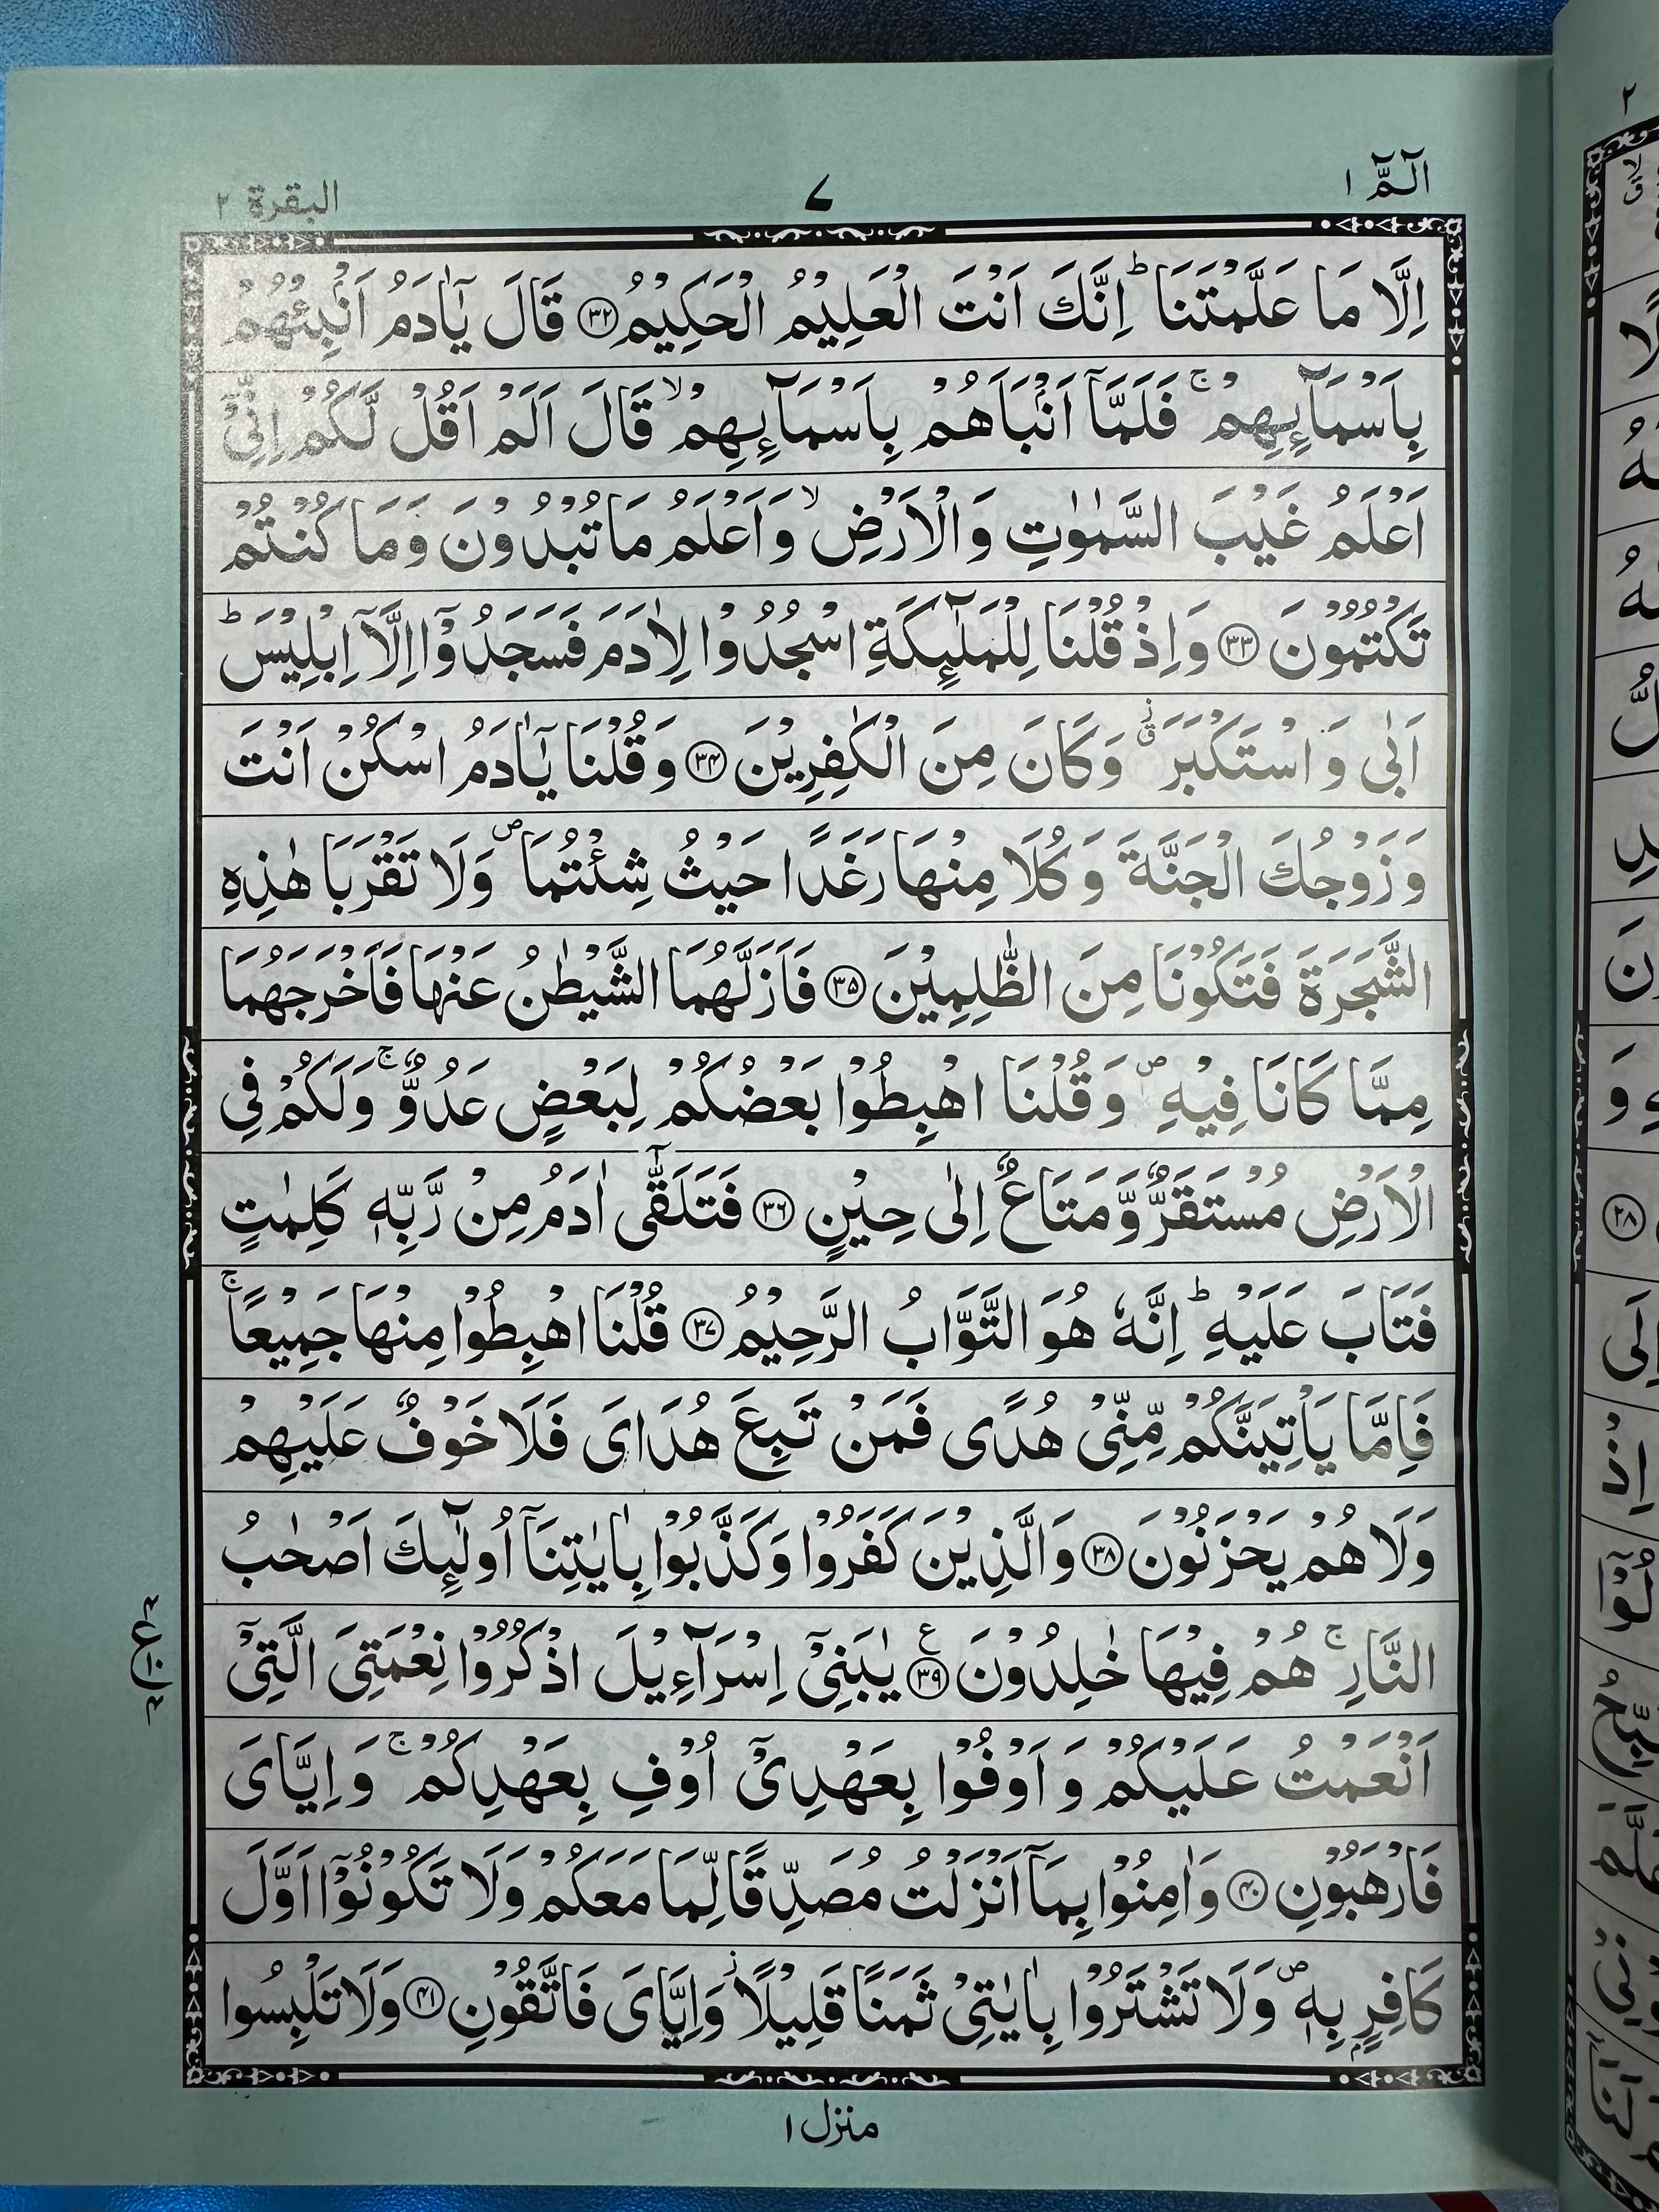 الٓـمّٓ ١
٧
البقرة ٢
اِلَّا مَا عَلَّمْتَنَا ؕ اِنَّكَ اَنْتَ الْعَلِيْمُ الْحَكِيْمُ ﴿۳۲﴾ قَالَ يٰۤاٰدَمُ اَنْۢبِئْهُمْ
بِاَسْمَآئِهِمْ ۚ فَلَمَّاۤ اَنْۢبَاَهُمْ بِاَسْمَآئِهِمْ ۙ قَالَ اَلَمْ اَقُلْ لَّكُمْ اِنِّيْۤ
اَعْلَمُ غَيْبَ السَّمٰوٰتِ وَالْاَرْضِ ۙ وَاَعْلَمُ مَا تُبْدُوْنَ وَمَا كُنْتُمْ
تَكْتُمُوْنَ ﴿۳۳﴾ وَاِذْ قُلْنَا لِلْمَلٰٓئِكَةِ اسْجُدُوْا لِاٰدَمَ فَسَجَدُوْۤا اِلَّاۤ اِبْلِيْسَ ؕ
اَبٰى وَ اسْتَكْبَرَ ۗ٘ وَكَانَ مِنَ الْكٰفِرِيْنَ ﴿۳۴﴾ وَقُلْنَا يٰۤاٰدَمُ اسْكُنْ اَنْتَ
وَزَوْجُكَ الْجَنَّةَ وَكُلَا مِنْهَا رَغَدًا حَيْثُ شِئْتُمَا ۪ وَلَا تَقْرَبَا هٰذِهِ
الشَّجَرَةَ فَتَكُوْنَا مِنَ الظّٰلِمِيْنَ ﴿۳۵﴾ فَاَزَلَّهُمَا الشَّيْطٰنُ عَنْهَا فَاَخْرَجَهُمَا
مِمَّا كَانَا فِيْهِ ۪ وَقُلْنَا اهْبِطُوْا بَعْضُكُمْ لِبَعْضٍ عَدُوٌّ ۚ وَلَكُمْ فِي
الْاَرْضِ مُسْتَقَرٌّ وَّمَتَاعٌ اِلٰى حِيْنٍ ﴿۳۶﴾ فَتَلَقّٰۤى اٰدَمُ مِنْ رَّبِّهٖ كَلِمٰتٍ
فَتَابَ عَلَيْهِ ؕ اِنَّهٗ هُوَ التَّوَّابُ الرَّحِيْمُ ﴿۳۷﴾ قُلْنَا اهْبِطُوْا مِنْهَا جَمِيْعًا ۚ
فَاِمَّا يَاْتِيَنَّكُمْ مِّنِّيْ هُدًى فَمَنْ تَبِعَ هُدَايَ فَلَا خَوْفٌ عَلَيْهِمْ
وَلَا هُمْ يَحْزَنُوْنَ ﴿۳۸﴾ وَالَّذِيْنَ كَفَرُوْا وَكَذَّبُوْا بِاٰيٰتِنَاۤ اُولٰٓئِكَ اَصْحٰبُ
النَّارِ ۚ هُمْ فِيْهَا خٰلِدُوْنَ ﴿۳۹﴾ يٰبَنِيْۤ اِسْرَآءِيْلَ اذْكُرُوْا نِعْمَتِيَ الَّتِيْۤ
اَنْعَمْتُ عَلَيْكُمْ وَ اَوْفُوْا بِعَهْدِيْۤ اُوْفِ بِعَهْدِكُمْ ۚ وَاِيَّايَ
فَارْهَبُوْنِ ﴿۴۰﴾ وَاٰمِنُوْا بِمَاۤ اَنْزَلْتُ مُصَدِّقًا لِّمَا مَعَكُمْ وَلَا تَكُوْنُوْۤا اَوَّلَ
كَافِرٍۭ بِهٖ ۪ وَلَا تَشْتَرُوْا بِاٰيٰتِيْ ثَمَنًا قَلِيْلًا ؗ وَاِيَّايَ فَاتَّقُوْنِ ﴿۴۱﴾ وَلَا تَلْبِسُوا
منزل ١